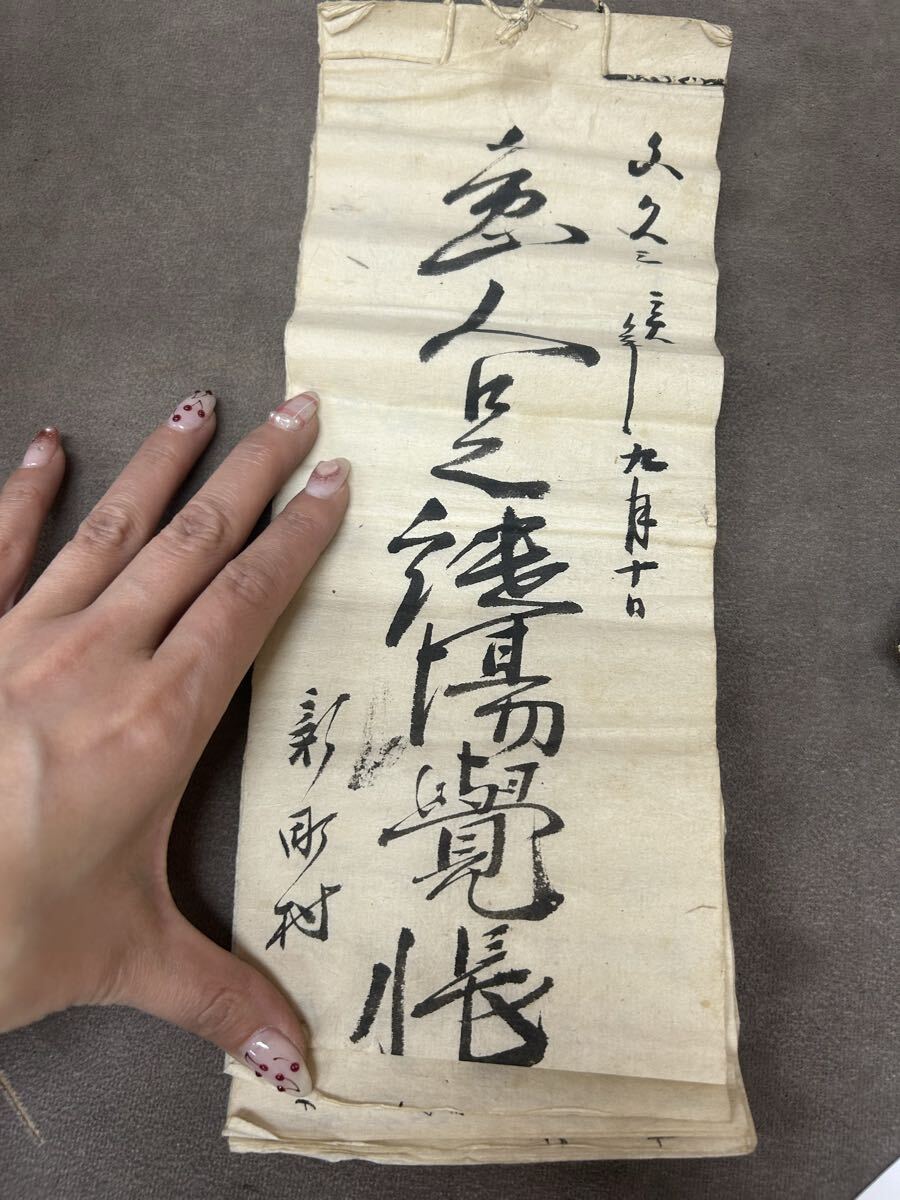 文久三亥年九月十日
急人足継場覺帳
新村